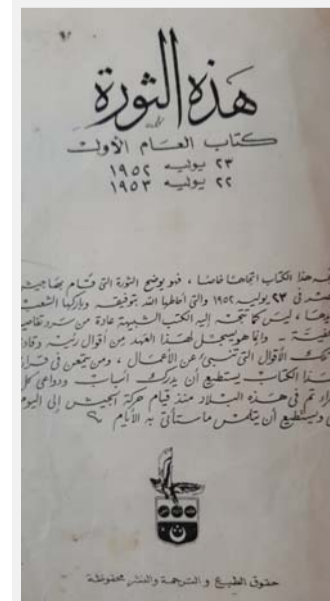 هذه الثورة
كتاب العام الأول
٢٣ يوليه ١٩٥٢
٢٢ يوليه ١٩٥٣
هذا الكتاب اتجاها خاصا ، فهو يوضح الثورة التى قام بها جيش
فى ٢٣ يوليه ١٩٥٢ والتى أحاطها الله بتوفيقه وباركها الشعب
ليس كما تتجه إليه الكتب الشبيهة عادة من سرد تفاصيل
وإنما هو يسجل لهذا العهد من أقوال رئيسه وقادته
تلك الأقوال التى تنبىء عن الأعمال ، ومن يتمعن فى قراءة
هذا الكتاب يستطيع أن يدرك أسباب ودواعى كل
تم فى هذه البلاد منذ قيام حركة الجيش إلى اليوم
ويستطيع أن يتلمس ما ستأتى به الأيام
حقوق الطبع والترجمة والنشر محفوظة